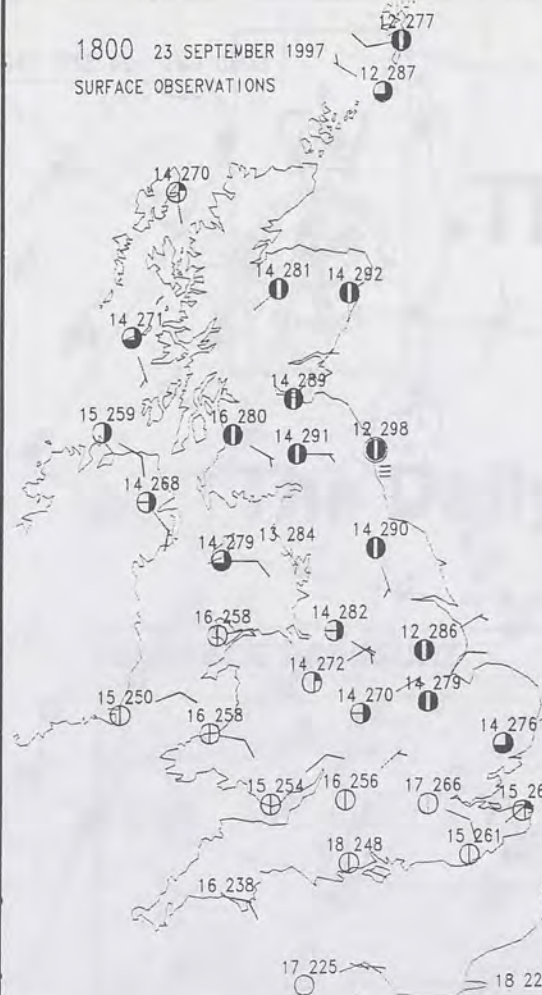 12 277
1800 23 SEPTEMBER 1997
12 287
SURFACE OBSERVATIONS
14 270
14 281
14 292
14 271
14 289
15 259
16 280
12 298
14 291
14 268
13 284
14 279
14 290
16 258
14 282
12 286
14 272
14 279
15 250
14 270
16 258
14 276
15 254
16 256
17 266
15 26
18 248
15 261
16 238
17 225
18 22